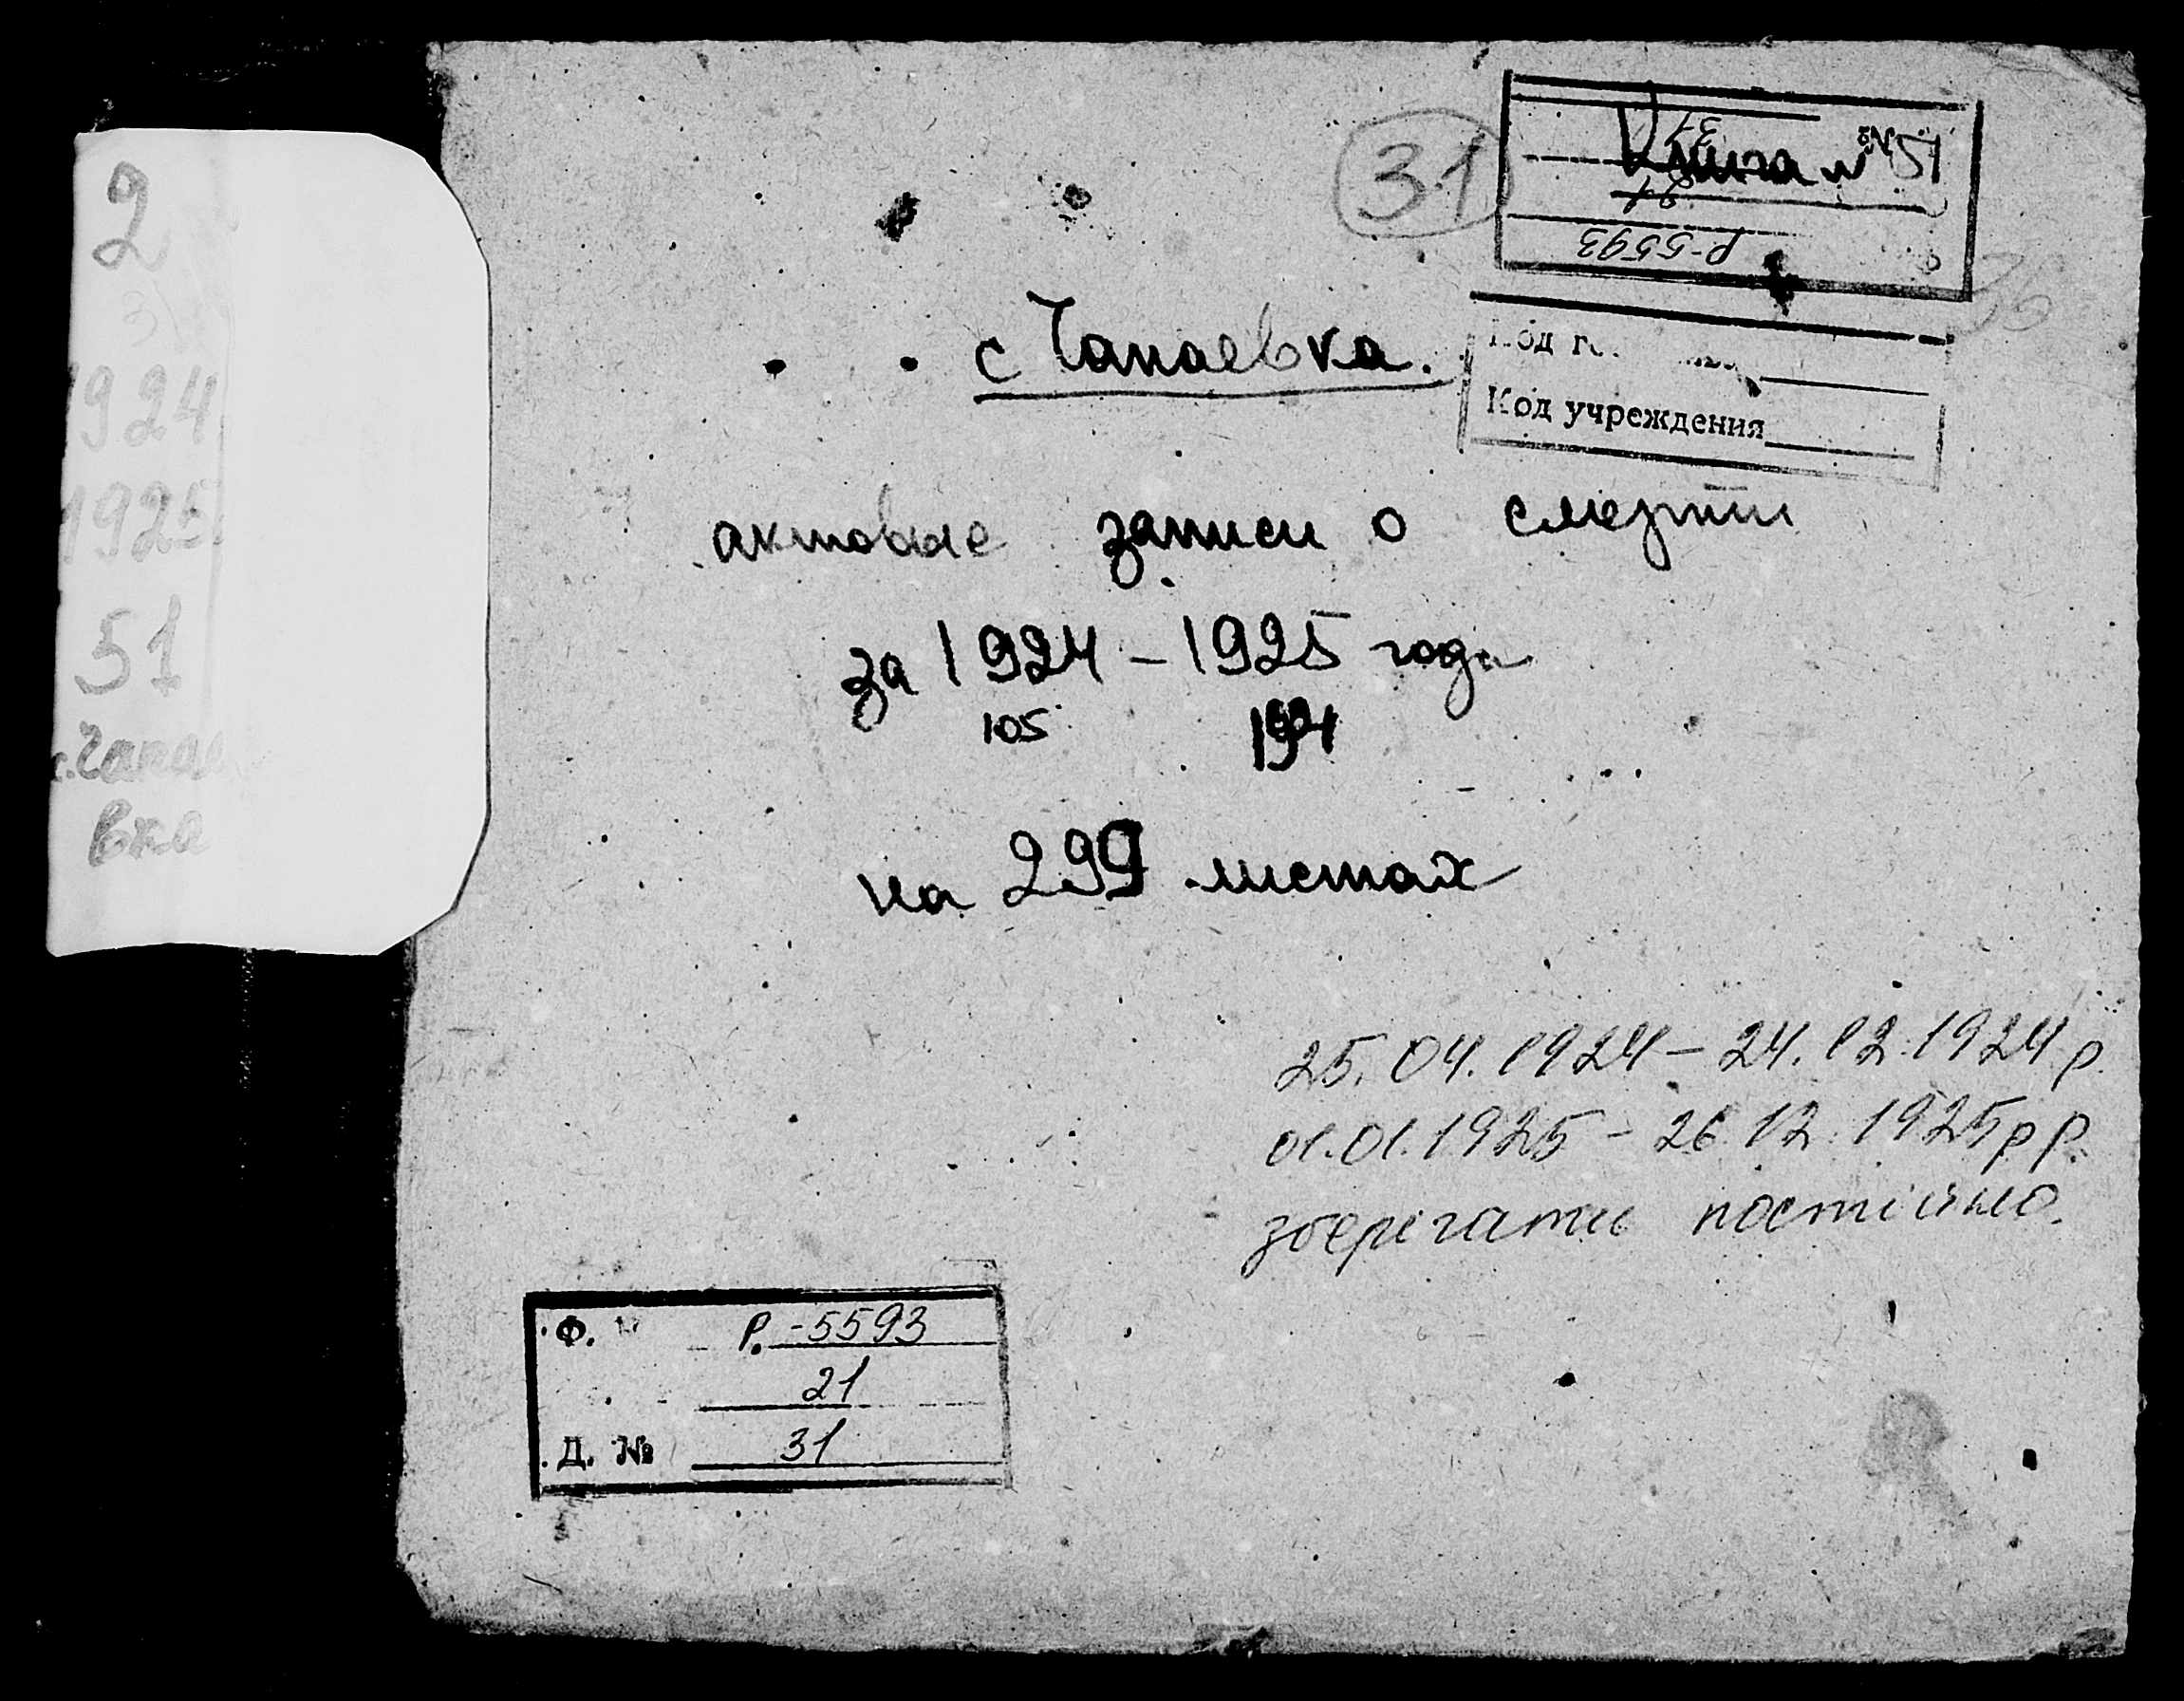 2
1924
1925
51
с. Чапае
вка
31
Книга № 51
31
21
Р-5593
с Чапаевка.
Код
Код учреждения
актовые записи о смерти
за 1924 - 1925 года
105 194
на 299 листах
25.04.1924 - 24.12.1924 р.
01.01.1925 - 26.12.1925 р р.
зберігати постійно.
Ф. Р.-5593
21
Д. № 31